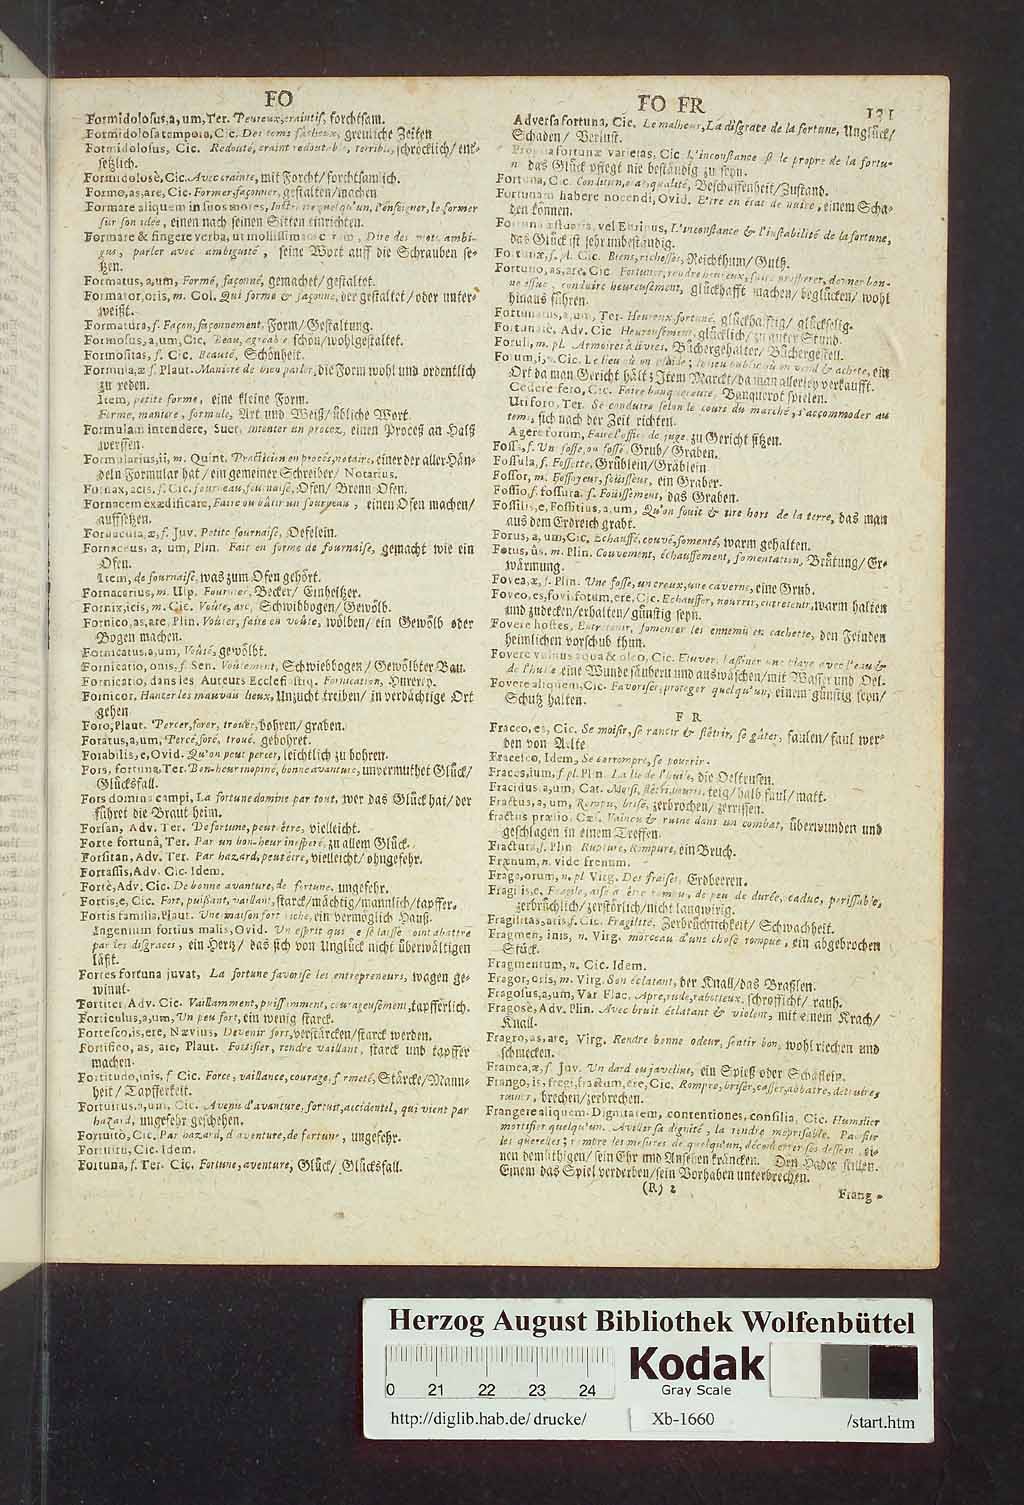 FO
Formidolosus, a, um, Ter. Peureux, craintif, forchtsam.
Formidolosa tempora, Cic. Des tems fâcheux, greuliche Zeiten
Formidolosus, Cic. Redouté, craint redoutable, terrible, schröcklich/ ent-
setzlich.
Formidolosè, Cic. Avec crainte, mit Forcht/ forchtsamlich.
Formo, as, are, Cic. Former, façonner, gestalten/machen.
Formare aliquem in suos mores, l'enseigner, le former
sur son idée, einen nach seinen Sitten einrichten.
Formare & fingere verba, ut mollissimam Dire des mots ambi-
gus, parler avec ambiguité, seine Wort auff die Schrauben se-
tzen.
Formatus, a, um, Formé, façonné, gemachet/ gestaltet.
Formator, oris, m. Col. Qui forme & façonne, der gestaltet/ oder unter-
weißt.
Formatura, f. Façon, façonnement, Form/Gestaltung.
Formosus, a, um, Cic. Beau, agreable schön/wohlgestaltet.
Formositas, f. Cic. Beauté, Schönheit.
Formula, æ f. Plaut. Maniere de bien parler, die Form wohl und ordentlich
zu reden.
Item, petite forme, eine kleine Form.
Forme, maniere, formule, Art und Weiß/übliche Wort.
Formulam intendere, Suet. Intenter un procez, einen Proceß an Halß
werffen.
Formularius, ii, m. Quint. Practicien en procés, notaire, einer der aller Hän-
deln Formular hat/ ein gemeiner Schreiber/ Notarius.
Fornax, acis, f. Cic. fourneau, fournaise, Ofen/ Brenn Ofen.
Fornacem exædificare, Faire ou bâtir un fourneau, einen Ofen machen/
auffsetzen.
Fornacula, æ, f. Juv. Petite fournaise, Oefelein.
Fornaceus, a, um, Plin. Fait en forme de fournaise, gemacht wie ein
Ofen.
Item, de fournaise, was zum Ofen gehört.
Fornacarius, m. Ulp. Fournier, Becker/ Einheitzer.
Fornix, icis, m. Cic. Voûte, arc, Schwibbogen/ Gewölb.
Fornico, as, are, Plin. Voûter, faire en voûte, wölben/ ein Gewölb oder
Bogen machen.
Fornicatus, a, um, Voûté, gewölbt.
Fornicatio, onis, f. Sen. Voûtement, Schwiebbogen/ Gewölbter Bau.
Fornicatio, dans les Auteurs Ecclesiastiq. Fornication, Hurerey.
Fornicor, Hanter les mauvais lieux, Unzucht treiben/ in verdächtige Ort
gehen
Foro, Plaut. Percer, forer, trouer, bohren/ graben.
Foratus, a, um, Percé, foré, troué, gebohret.
Forabilis, e, Ovid. Qu'on peut percer, leichtlich zu bohren.
Fors, fortuna, Ter. Bon-heur inopiné, bonne avanture, unvermuthet Glück/
Glücksfall.
Fors domina campi, La fortune domine par tout, wer das Glück hat/ der
führet die Braut heim.
Forsan, Adv. Ter. De fortune, peut être, vielleicht.
Forte fortunâ, Ter. Par un bon-heur inesperé, zu allem Glück.
Forsitan, Adv. Ter. Par hazard, peut être, vielleicht/ ohngefehr.
Fortassis, Adv. Cic. Idem.
Fortè, Adv. Cic. De bonne avanture, de fortune, ungefehr.
Fortis, e, Cic. Fort, puissant, vaillant, starck/mächtig/mannlich/ tapffer.
Fortis familia, Plaut. Une maison fort riche, ein vermöglich Hauß.
Ingenium fortius malis, Ovid. Un esprit qui ne se laisse point abattre
par les disgraces, ein Hertz/ das sich von Unglück nicht überwältigen
läßt.
Fortes fortuna juvat, La fortune favorise les entrepreneurs, wagen ge-
winnt.
Fortiter, Adv. Cic. Vaillamment, puissamment, courageusement, tapfferlich.
Forticulus, a, um, Un peu fort, ein wenig starck.
Fortesco, is, ere, Nævius, Devenir fort, verstärcken/starck werden.
Fortifico, as, are, Plaut. Fortifier, rendre vaillant, starck und tapffer
machen.
Fortitudo, inis, f. Cic. Force, vaillance, courage, fermeté, Stärcke/Mann-
heit/ Tapfferkeit.
Fortuitus, a, um, Cic. Avenu d'avanture, fortuit, accidentel, qui vient par
hazard, ungefehr geschehen.
Fortuitò, Cic. Par hazard, d'aventure, de fortune, ungefehr.
Fortuitu, Cic. Idem.
Fortuna, f. Ter. Cic. Fortune, aventure, Glück/ Glücksfall.
FO FR 131
Adversa fortuna, Cic. Le malheur, La disgrace de la fortune, Unglück/
Schaden/ Verlust.
fortunæ varietas, Cic. L'inconstance est le propre de la fortu-
ne, das Glück pflegt nie beständig zu seyn.
Fortuna, Cic. Condition, qualité, Beschaffenheit/Zustand.
Fortunam habere nocendi, Ovid. Etre en état de nuire, einem Scha-
den können.
vel Euripus, L'inconstance & l'instabilité de la fortune,
das Glück ist sehr unbeständig.
Fortunæ, f. pl. Cic. Biens, richesses, Reichthum/ Guth.
Fortuno, as, are, Cic. Fortuner, rendre heureux, faire prosperer, donner bon-
ne issue, conduire heureusement, glückhafft machen/ beglücken/ wohl
hinaus führen.
Fortunatus, a, um, Ter. Heureux, fortuné, glückhafftig/ glückselig.
Fortunatè, Adv. Cic Heureusement, glücklich/ zu guter Stund.
Foruli, m. pl. Armoires à livres, Büchergehalter/ Büchergestell.
Forum, i, n. Cic. Le lieu où on plaide; le lieu public où on vend & achete, ein
Ort da man Gericht hält; Item Marckt/da man allerley verkaufft.
Cedere foro, Cic. Faire banqueroute, Banquerot spielen.
Uti foro, Ter. Se conduire selon le cours du marché, s'accommoder au
tems, sich nach der Zeit richten.
Agere forum, Faire l'office de juge, zu Gericht sitzen.
Fossa, f. Un fosse, ou fossé, Grub/ Graben.
Fossula, f. Fossette, Grüblein/ Gräblein
Fossor, m. Fossoyeur, foüisseur, ein Graber.
Fossio, f. fossura, f. Foüissement, das Graben.
Fossilis, e, Fossitius, a, um, Qu'on fouit & tire hors de la terre, das man
aus dem Erdreich grabt.
Fotus, a, um, Cic. Echauffé, couvé, fomenté, warm gehalten.
Fotus, ûs, m. Plin. Couvement, échauffement, fomentation, Brütung/ Er-
wärmung.
Fovea, æ, f. Plin. Une fosse, un creux, une caverne, eine Grub.
Foveo, es, fovi, fotum, ere, Cic. Echauffer, nourrir, entretenir, warm halten
und zudecken/erhalten/ günstig seyn.
Fovere hostes, Entretenir, fomenter les ennemis en cachette, den Feinden
heimlichen vorschub thun.
Fovere vulnus aqua & oleo, Cic. Etuver, bassiner une playe avec l'eau &
de l'huile, eine Wunde säubern und auswäschen/mit Wasser und Oel.
Fovere aliquem, Cic. Favoriser, proteger quelqu'un, einem günstig seyn/
Schutz halten.
F R
Fraceo, es, Cic. Se moisir, se rancir & flétrir, se gâter, faulen/ faul wer-
den von Alte
Fracesco, Idem, Se corrompre, se pourrir.
Fraces, ium, f. pl. Plin. La lie de l'huile, die Oeltrusen.
Fracidus, a, um, Cat. Moisi, flétri, pourri, teig/ halb faul/ matt.
Fractus, a, um, Rompu, brisé, zerbrochen/ zerrissen.
fractus prælio, Cæs. Vaincu & ruiné dans un combat, überwunden und
geschlagen in einem Treffen.
Fractura, f. Plin Rupture, Rompure, ein Bruch.
Frænum, n. vide frenum.
Fraga, orum, n. pl Virg. Des fraises, Erdbeeren.
Fragilis, e, Fragile, aisé à être rompu, de peu de durée, caduc, perissable,
zerbrüchlich/ zerstörlich/nicht langwirig.
Fragilitas, atis, f. Cic. Fragilité, Zerbrüchlichkeit/ Schwachheit.
Fragmen, inis, n. Virg. morceau d'une chose rompue, ein abgebrochen
Stück.
Fragmentum, n. Cic. Idem.
Fragor, oris, m. Virg. Son éclatant, der Knall/das Braßlen.
Fragosus, a, um, Var. Flac. Apre, rude, raboteux, schrofficht/ rauh.
Fragosè, Adv. Plin. Avec bruit éclatant & violent, mit einem Krach/
Knall.
Fragro, as, are, Virg. Rendre bonne odeur, sentir bon, wohl riechen und
schmecken.
Framea, æ, f. Juv. Un dard ou javeline, ein Spieß oder Schäflein.
Frango, is, fregi, fractum, ere, Cic, Rompre, briser, casser, abbatre, détruire,
ruiner, brechen/zerbrechen.
Frangere aliquem. Dignitatem, contentiones, consilia, Cic. Humilier
mortifier quelqu'un. Avilir sa dignité, la rendre méprisable. Pacifier
les querelles; rompre les mesures de quelqu'un, déconcerter ses desseins, ei-
nen demüthigen/ sein Ehr und Ansehen kräncken. Den Hader stillen.
Einem das Spiel verderben/sein Vorhaben unterbrechen.
(R) 2 Frang-
Herzog August Bibliothek Wolfenbüttel
0 21 22 23 24
Kodak
Gray Scale
http://diglib.hab.de/drucke/ Xb-1660 /start.htm